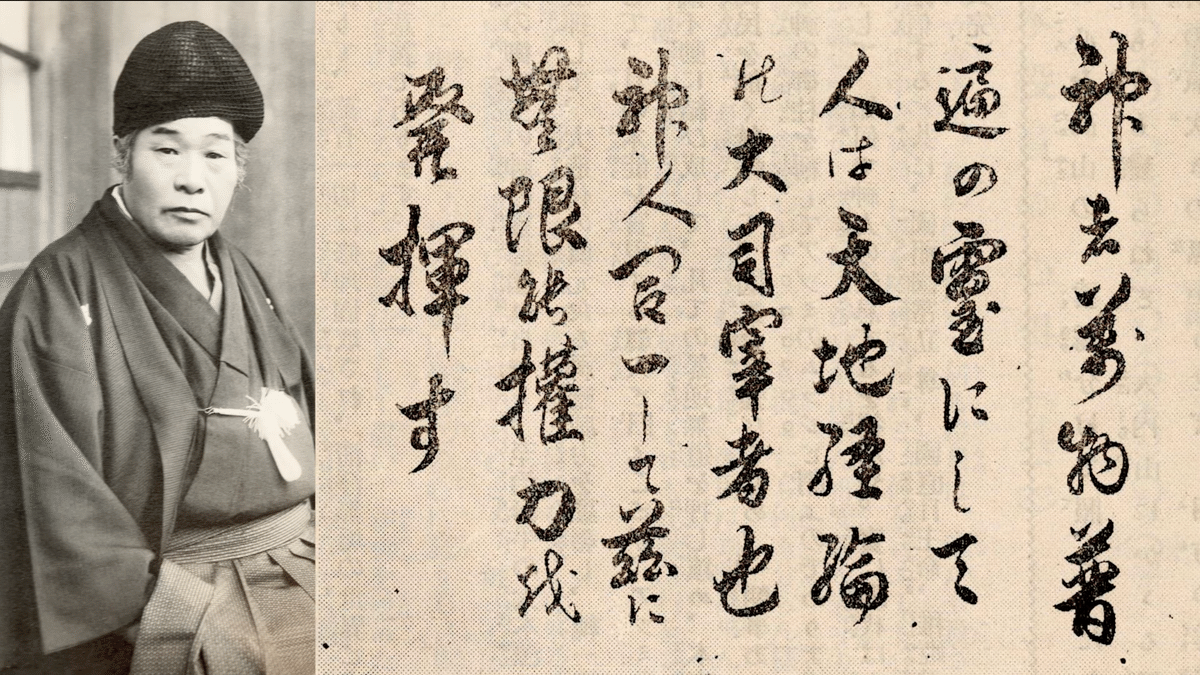 神は萬物普
遍の靈にして
人は天地經綸
の大司宰者也
神人合一して茲に
無限の權力を
發揮す